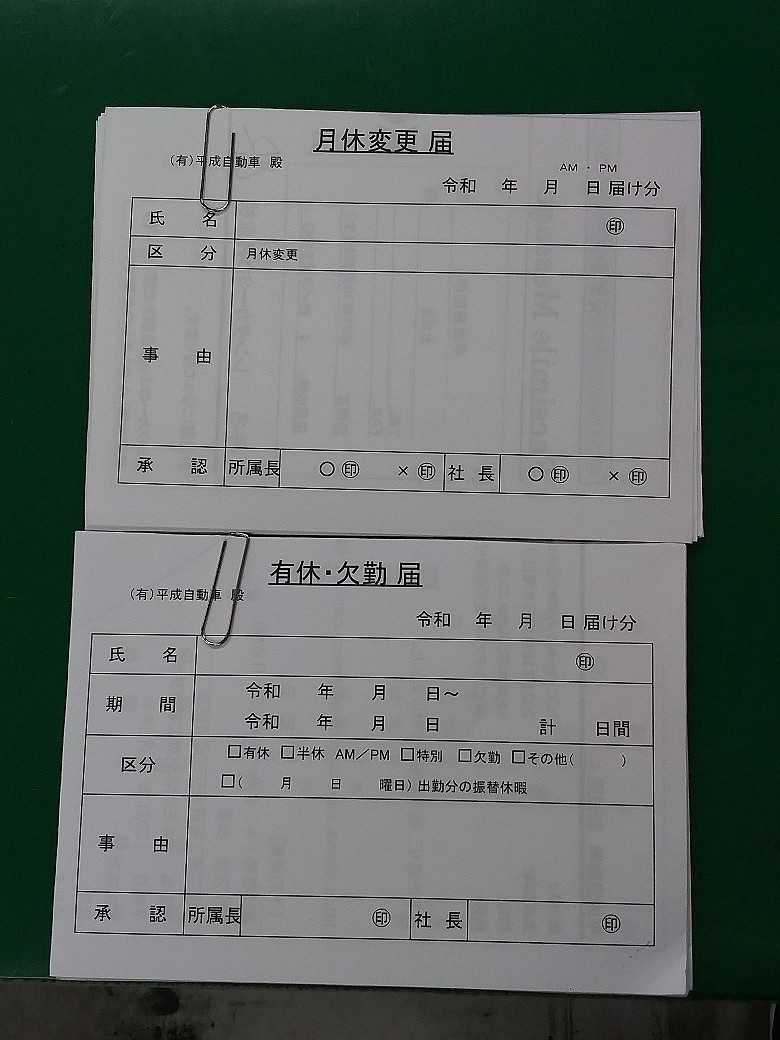 月休変更 届
(有)平成自動車 殿
AM ・ PM
令和 年 月 日 届け分
氏 名 ㊞
区 分 月休変更
事 由
承 認 所属長 〇 ㊞ × ㊞ 社 長 〇 ㊞ × ㊞
有休・欠勤 届
(有)平成自動車 殿
令和 年 月 日 届け分
氏 名 ㊞
期 間 令和 年 月 日～
令和 年 月 日 計 日間
区分 □有休 □半休 AM／PM □特別 □欠勤 □その他( )
□( 月 日 曜日) 出勤分の振替休暇
事 由
承 認 所属長 ㊞ 社 長 ㊞